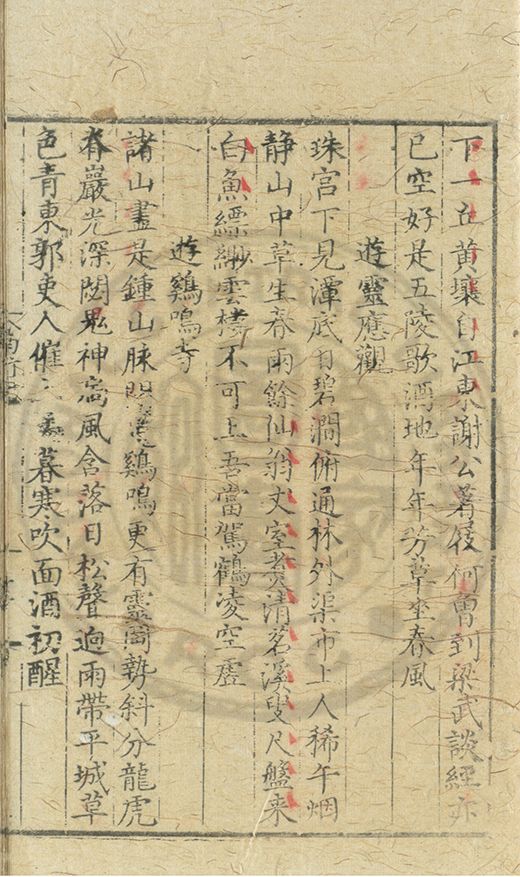 下一丘黄壤自江東謝公著屐何曾到梁武談經亦
已空好是五陵歌酒地年年芳草坐春風
遊靈應觀
珠宮下見潭底月碧澗俯通林外渠市上人稀午烟
静山中草生春雨餘仙翁丈室煮清茗溪叟尺盤来
白魚縹緲雲樓不可上吾當駕鶴凌空虛
遊鷄鳴寺
諸山盡是鍾山脉鷄鳴更有靈岡勢斜分龍虎
脊巖光深閟鬼神扃風含落日松聲逈雨帶平城草
色青東郭吏人催暮寒吹面酒初醒